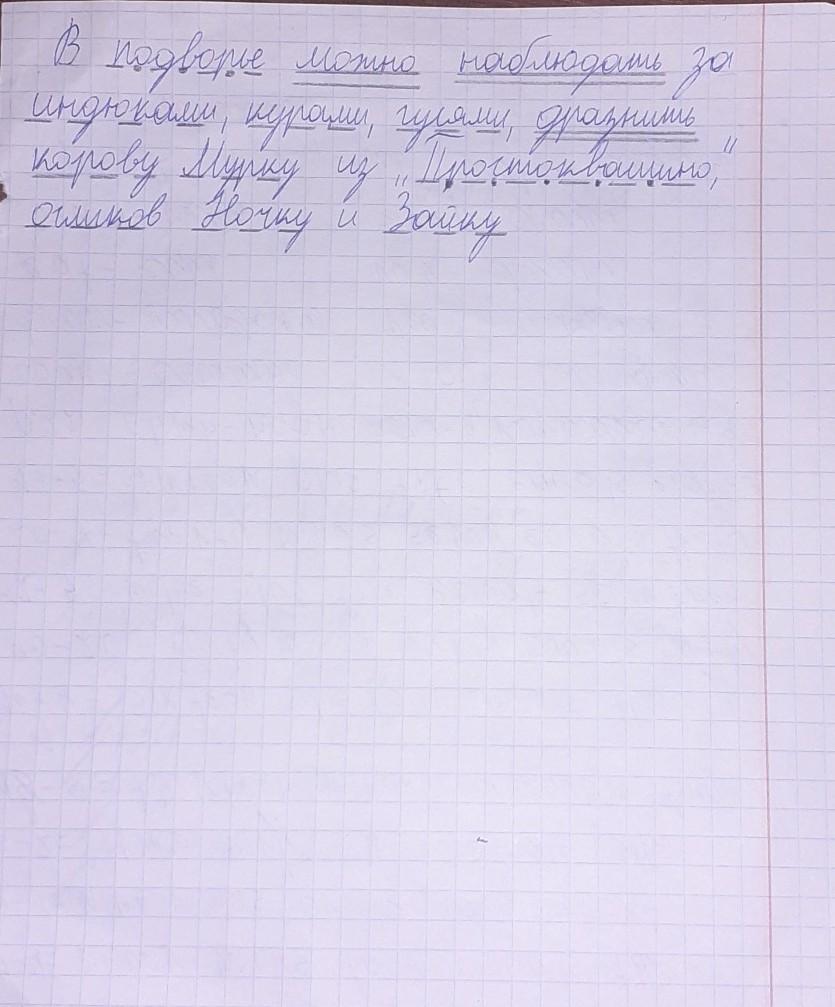 В подворье можно наблюдать за
индюками, курами, гусями, дразнить
корову Мурку из „Простоквашино,"
осликов Ночку и Зайку